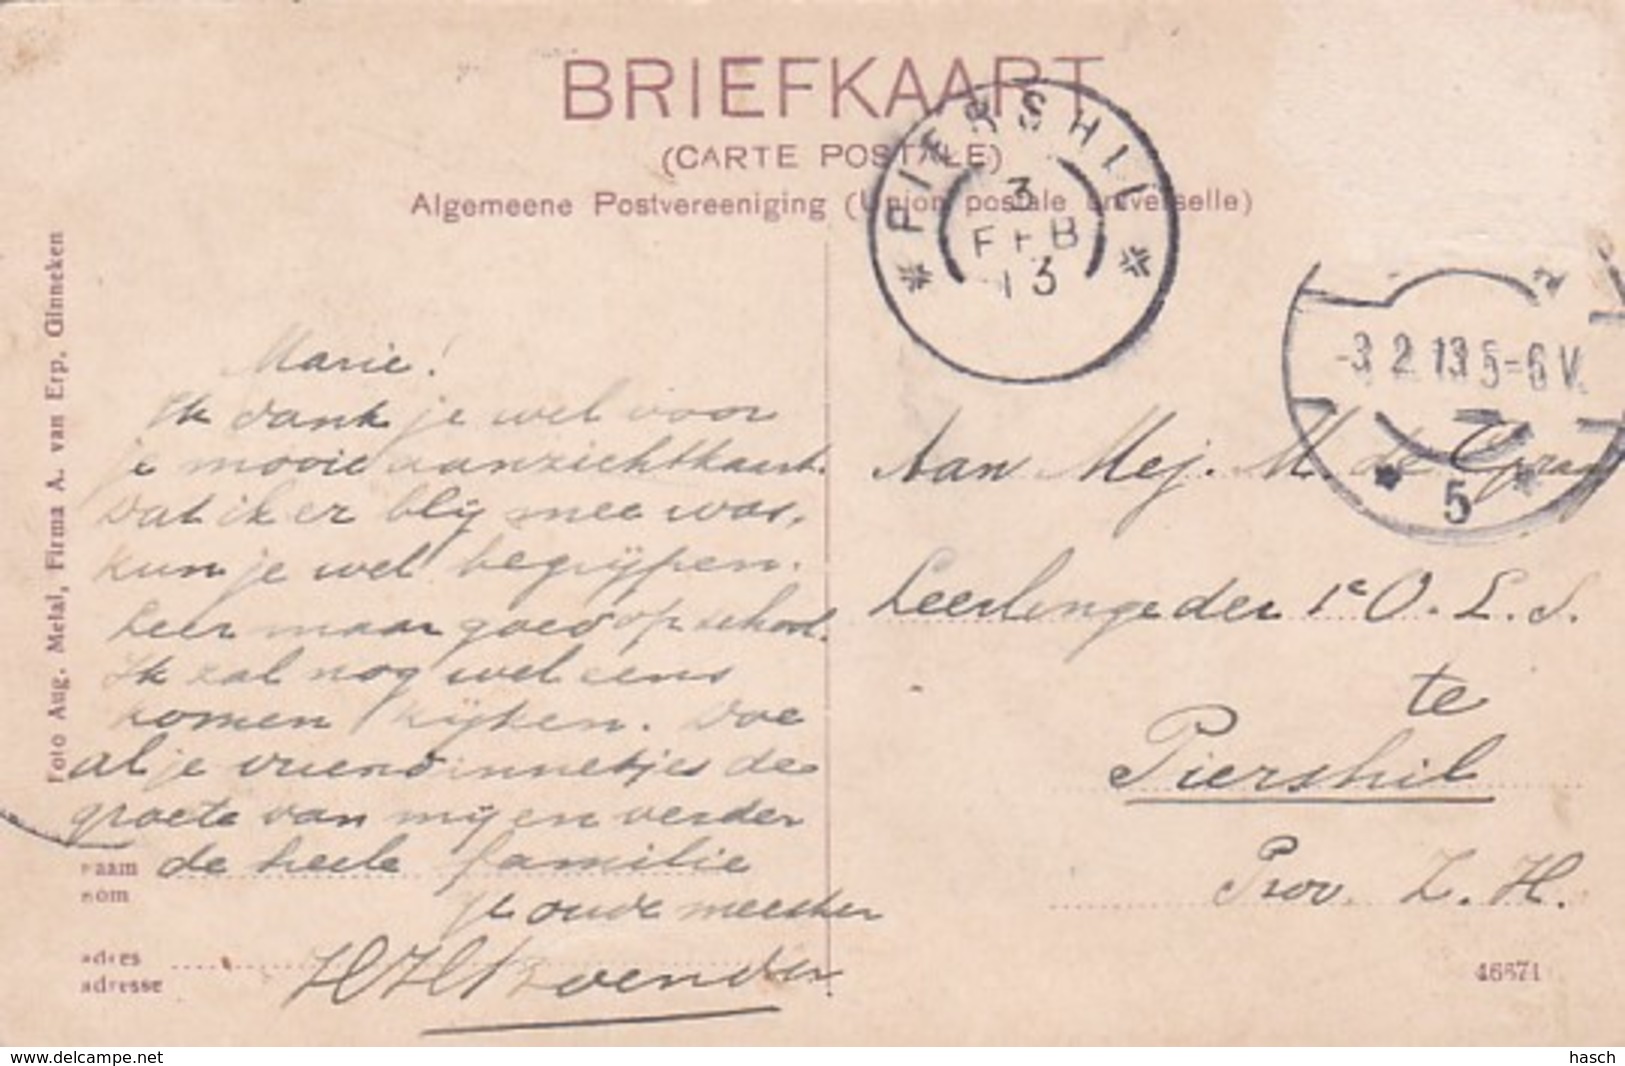 BRIEFKAART
(CARTE POSTALE)
Algemeene Postvereeniging (Union postale universelle)
PIERSHIL
3
FEB
13
-3.2.13 5-6 V.
5
Foto Aug. Melai, Firma A. van Erp, Ginneken
Marie!
Ik dank je wel voor
je mooie aanzichtkaart.
Dat ik er blij mee was,
kun je wel begrijpen.
Leer maar goed op school.
Ik zal nog wel eens
komen kijken. Doe
al je vriendinnetjes de
groete van mij en verder
de heele familie
Je oude meester
Aan Mej. M. de
Leerlinge der 1e O. L. S.
te
Piershil
Prov. Z. H.
naam
nom
adres
adresse
46671
www.delcampe.net
hasch